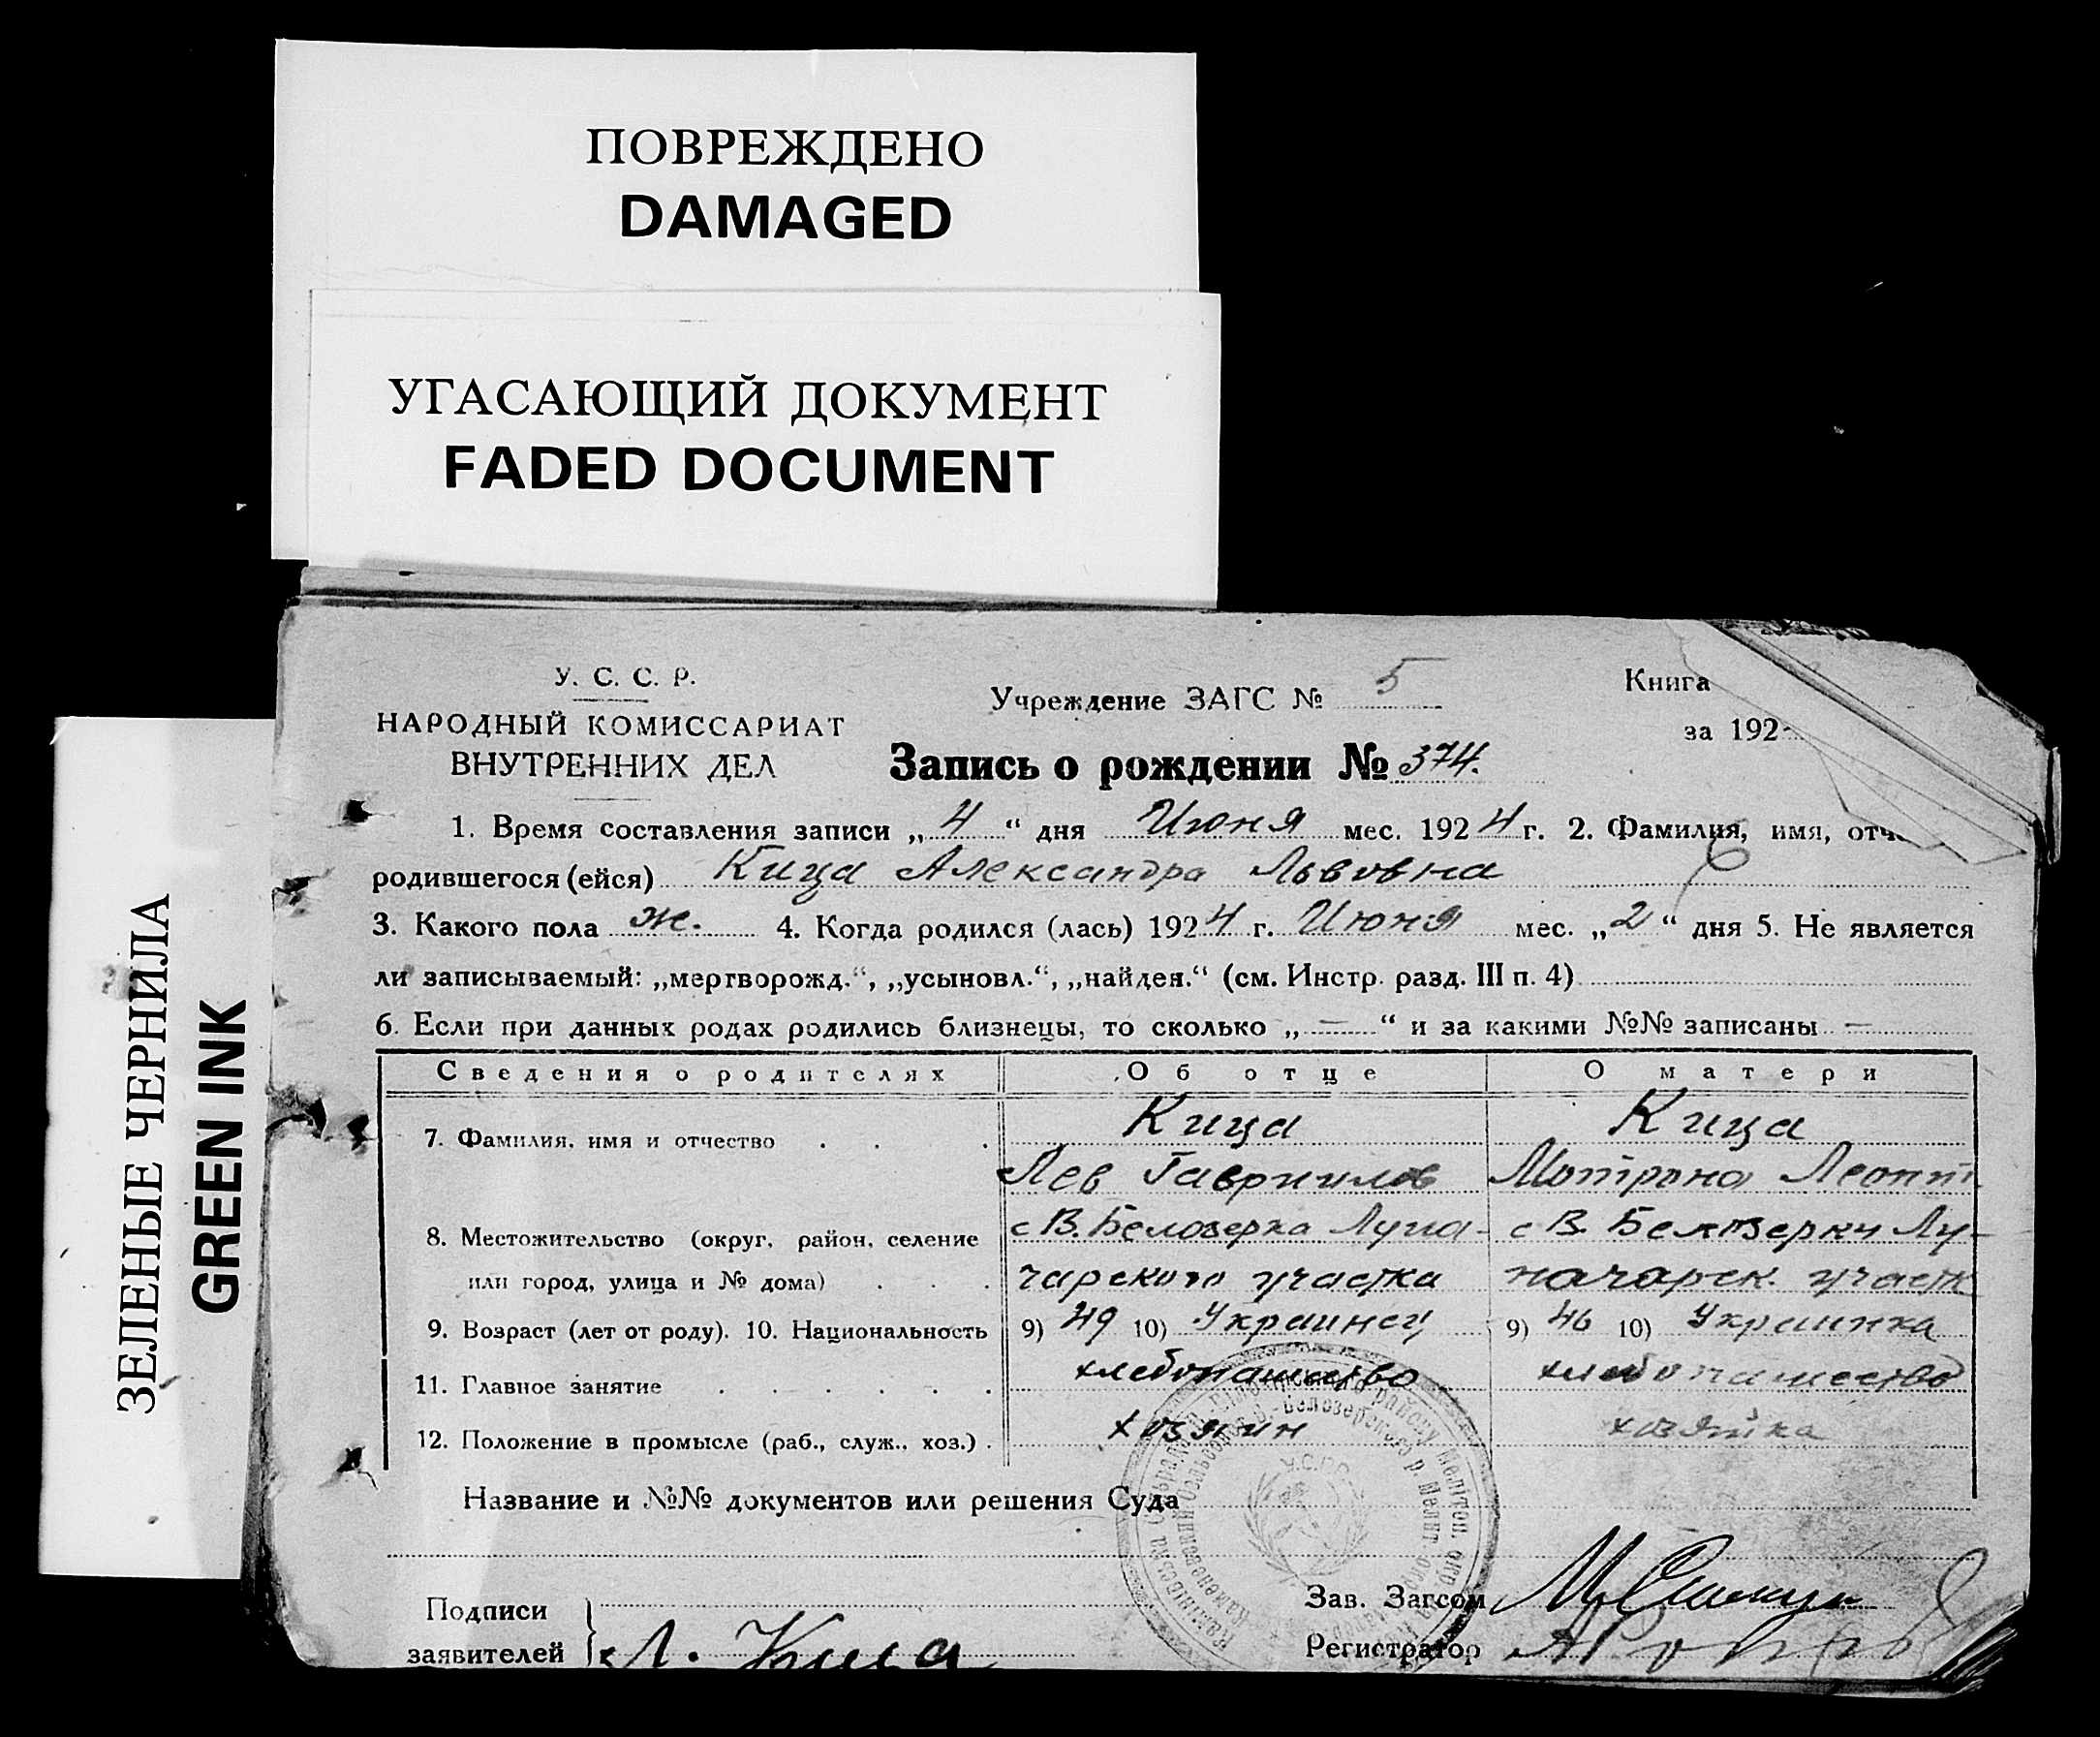 ПОВРЕЖДЕНО
DAMAGED
УГАСАЮЩИЙ ДОКУМЕНТ
FADED DOCUMENT
ЗЕЛЕНЫЕ ЧЕРНИЛА
GREEN INK
У. С. С. Р.
НАРОДНЫЙ КОМИССАРИАТ
ВНУТРЕННИХ ДЕЛ
Учреждение ЗАГС № 5
Книга
за 192
Запись о рождении № 374.
1. Время составления записи „ 4 “ дня Июня мес. 1924 г. 2. Фамилия, имя, отч
родившегося (ейся) Кица Александра Львовна
3. Какого пола ж. 4. Когда родился (лась) 1924 г. Июня мес. „ 2 “ дня 5. Не является
ли записываемый: „мертворожд.“, „усыновл.“, „найден.“ (см. Инстр. разд. III п. 4)
6. Если при данных родах родились близнецы, то сколько „ — “ и за какими №№ записаны —
Сведения о родителях Об отце О матери
7. Фамилия, имя и отчество Кица Кица
Лев Гавриилов Мотрона Леонт.
8. Местожительство (округ, район, селение с В. Белозерка Луна- с В. Белозерки Лу-
или город, улица и № дома) чарского участка начарск. участк
9. Возраст (лет от роду). 10. Национальность 9) 49 10) Украинец 9) 46 10) Украинка
11. Главное занятие хлебопашество хлебопашество
12. Положение в промысле (раб., служ., хоз.) хозяин хозяйка
Название и №№ документов или решения Суда
У.С.Р.Р.
Подписи
заявителей Л. Кица
Зав. Загсом
Регистратор